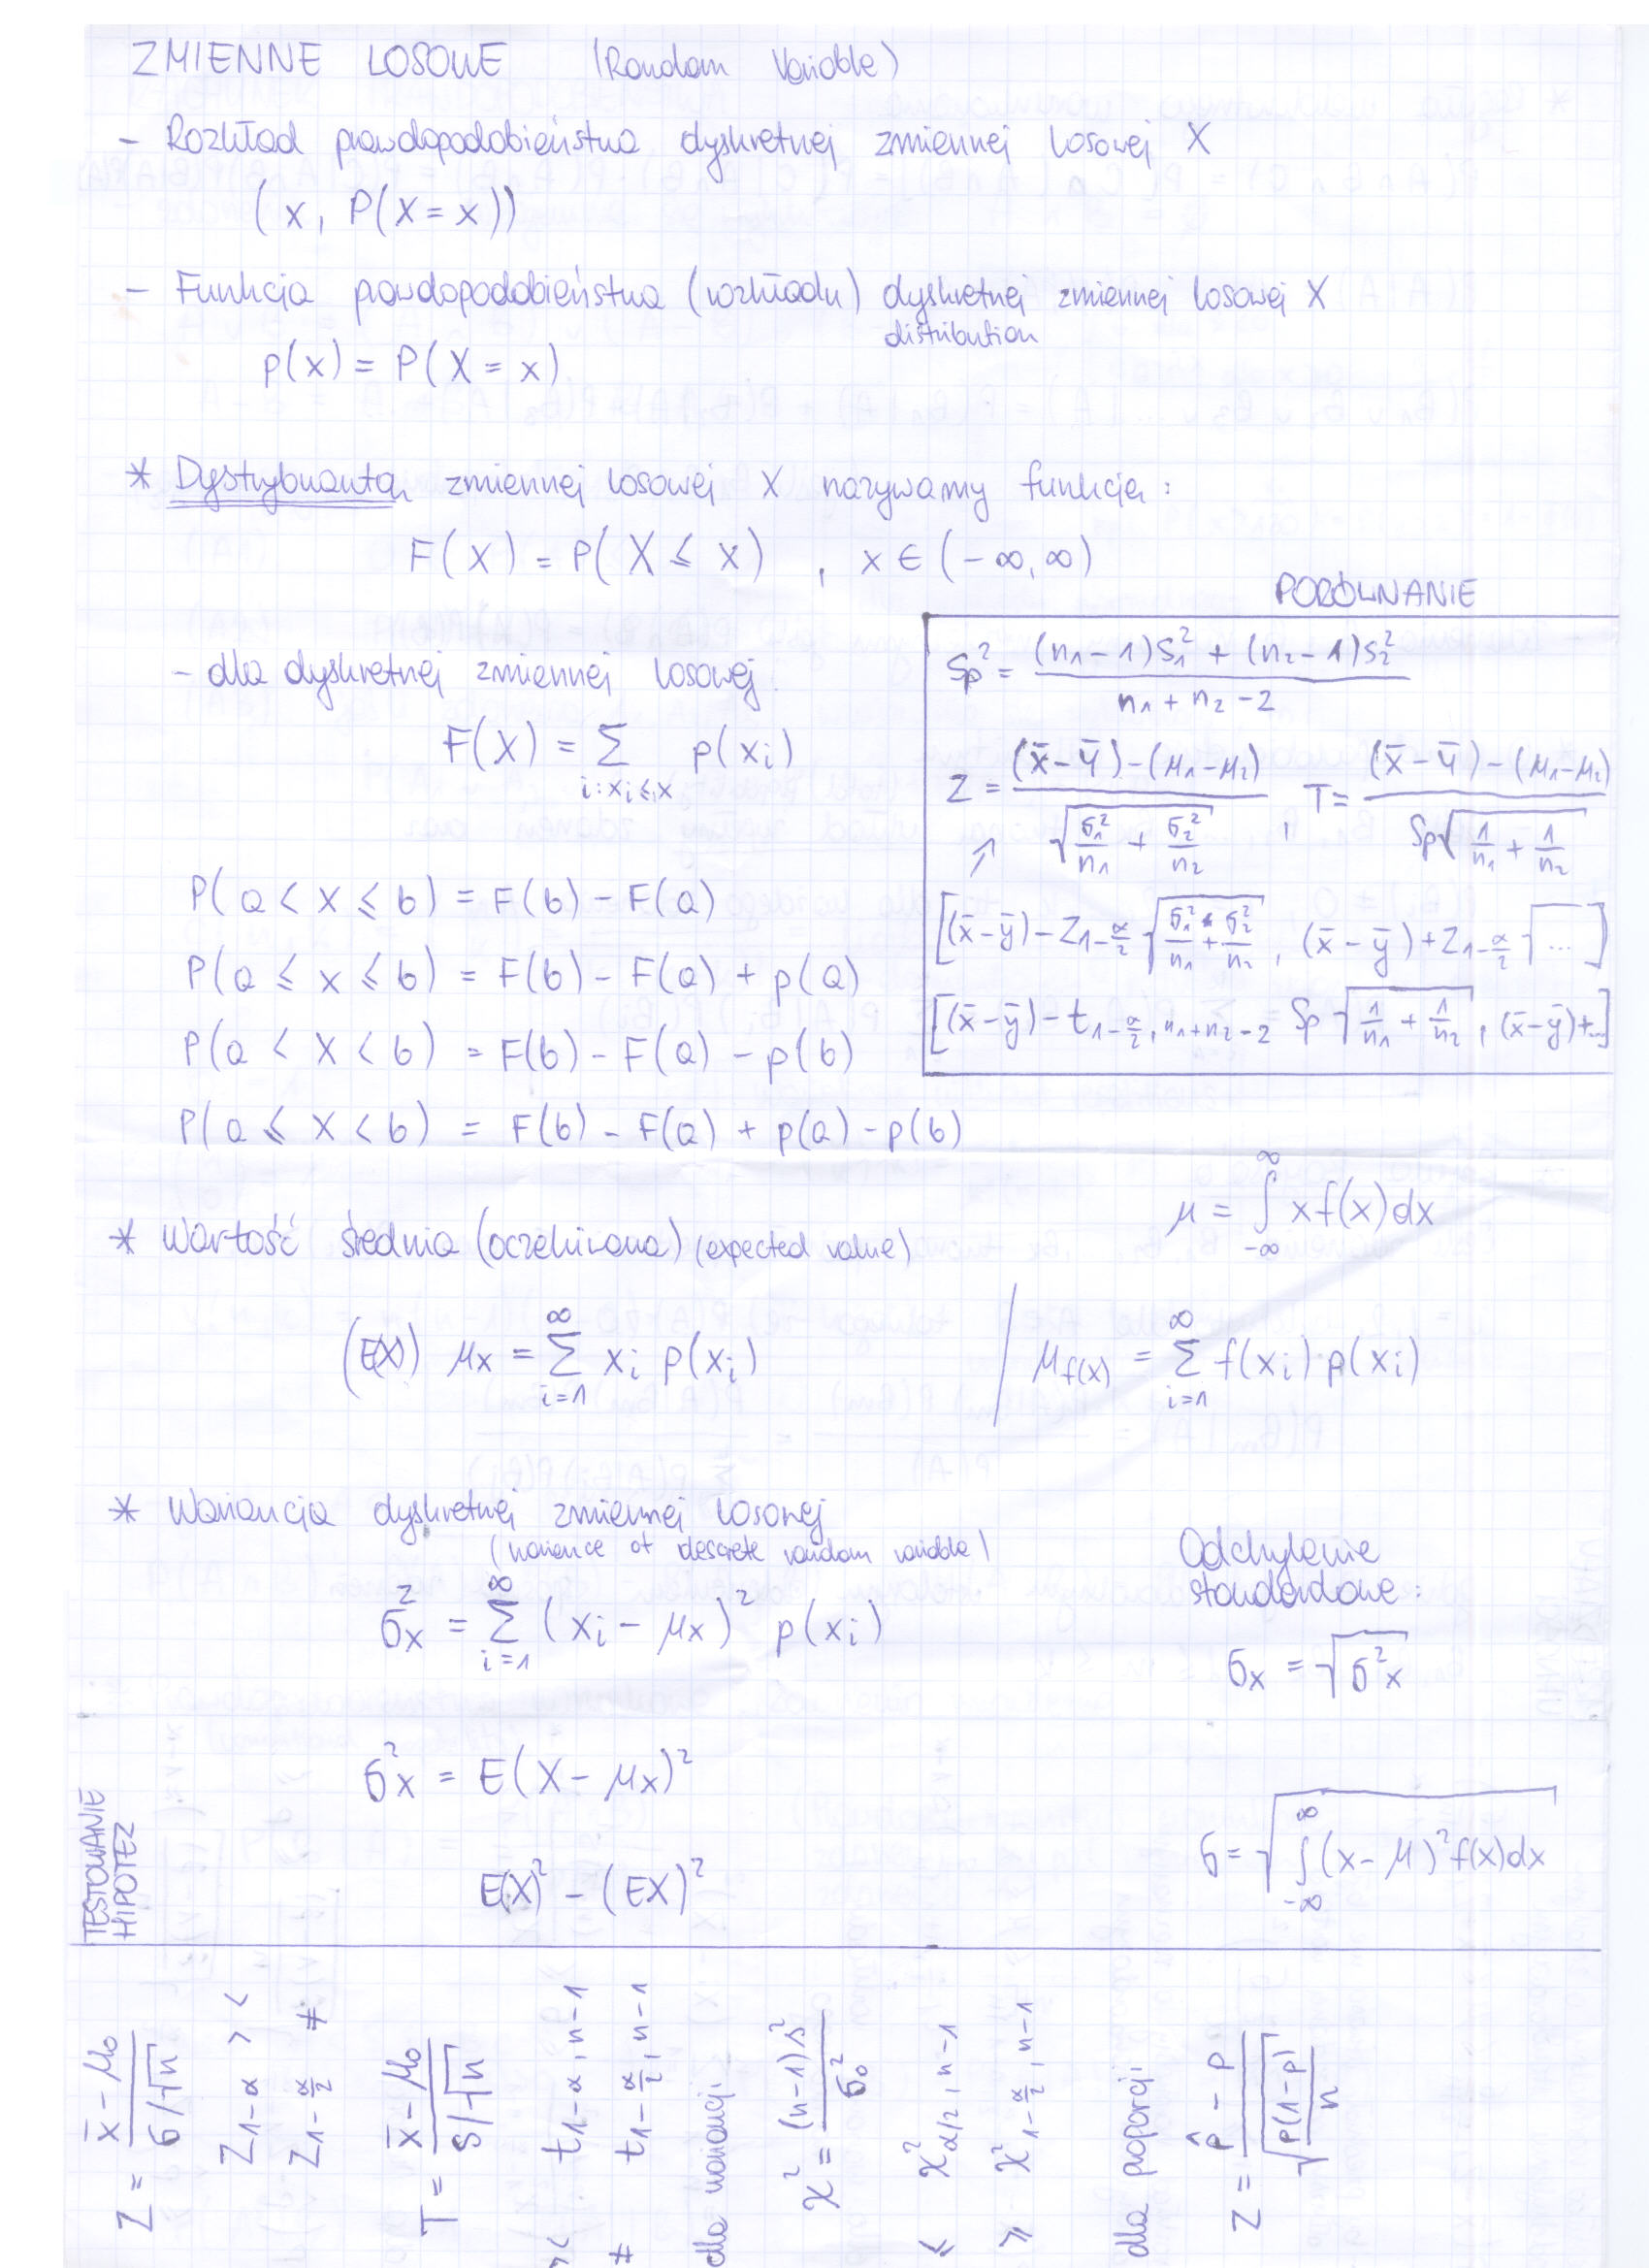 ZMIENNE LOSOWE (Random Variable)
- Rozkład prawdopodobieństwa dyskretnej zmiennej losowej X
(x, P(X = x))
- Funkcja prawdopodobieństwa (rozkładu) dyskretnej zmiennej losowej X
distribution
p(x) = P(X = x)
* Dystrybuantą zmiennej losowej X nazywamy funkcję:
F(X) = P(X ≤ x) , x ∈ (-∞, ∞)
- dla dyskretnej zmiennej losowej:
F(X) = Σ p(xi)
i: xi ≤ x
P(a < X ≤ b) = F(b) - F(a)
P(a ≤ x ≤ b) = F(b) - F(a) + p(a)
P(a < X < b) = F(b) - F(a) - p(b)
P(a ≤ X < b) = F(b) - F(a) + p(a) - p(b)
PORÓWNANIE
Sp² = ((n₁ - 1)S₁² + (n₂ - 1)S₂²) / (n₁ + n₂ - 2)
Z = ((x̄ - Ȳ) - (μ₁ - μ₂)) / √(σ₁²/n₁ + σ₂²/n₂) , T = ((x̄ - Ȳ) - (μ₁ - μ₂)) / Sp√(1/n₁ + 1/n₂)
[(x̄ - ȳ) - Z₁₋α/₂ √(σ₁²/n₁ + σ₂²/n₂) , (x̄ - ȳ) + Z₁₋α/₂ √...]
[(x̄ - ȳ) - t₁₋α/₂, n₁+n₂-2 Sp √(1/n₁ + 1/n₂) , (x̄ - ȳ) + ...]
* Wartość średnia (oczekiwana) (expected value)
μ = ∫ from -∞ to ∞ x f(x) dx
(E(X)) μx = Σ from i=1 to ∞ xi p(xi) / μf(x) = Σ from i=1 to ∞ f(xi) p(xi)
* Wariancja dyskretnej zmiennej losowej
(variance of descrete random variable)
σx² = Σ from i=1 to ∞ (xi - μx)² p(xi)
Odchylenie
standardowe:
σx = √σ²x
σ²x = E(X - μx)²
E(X)² - (EX)²
σ = √(∫ from -∞ to ∞ (x - μ)² f(x) dx)
TESTOWANIE
HIPOTEZ
Z = (x̄ - μ₀) / (σ/√n)
Z₁₋α > <
Z₁₋α/₂ ≠
T = (x̄ - μ₀) / (S/√n)
> < t₁₋α, n-1
≠ t₁₋α/₂, n-1
dla wariancji:
χ² = (n-1)s² / σ₀²
≤ χ²α/2, n-1
≥ χ²₁₋α/₂, n-1
dla proporcji:
Z = (p̂ - p) / √(p(1-p)/n)